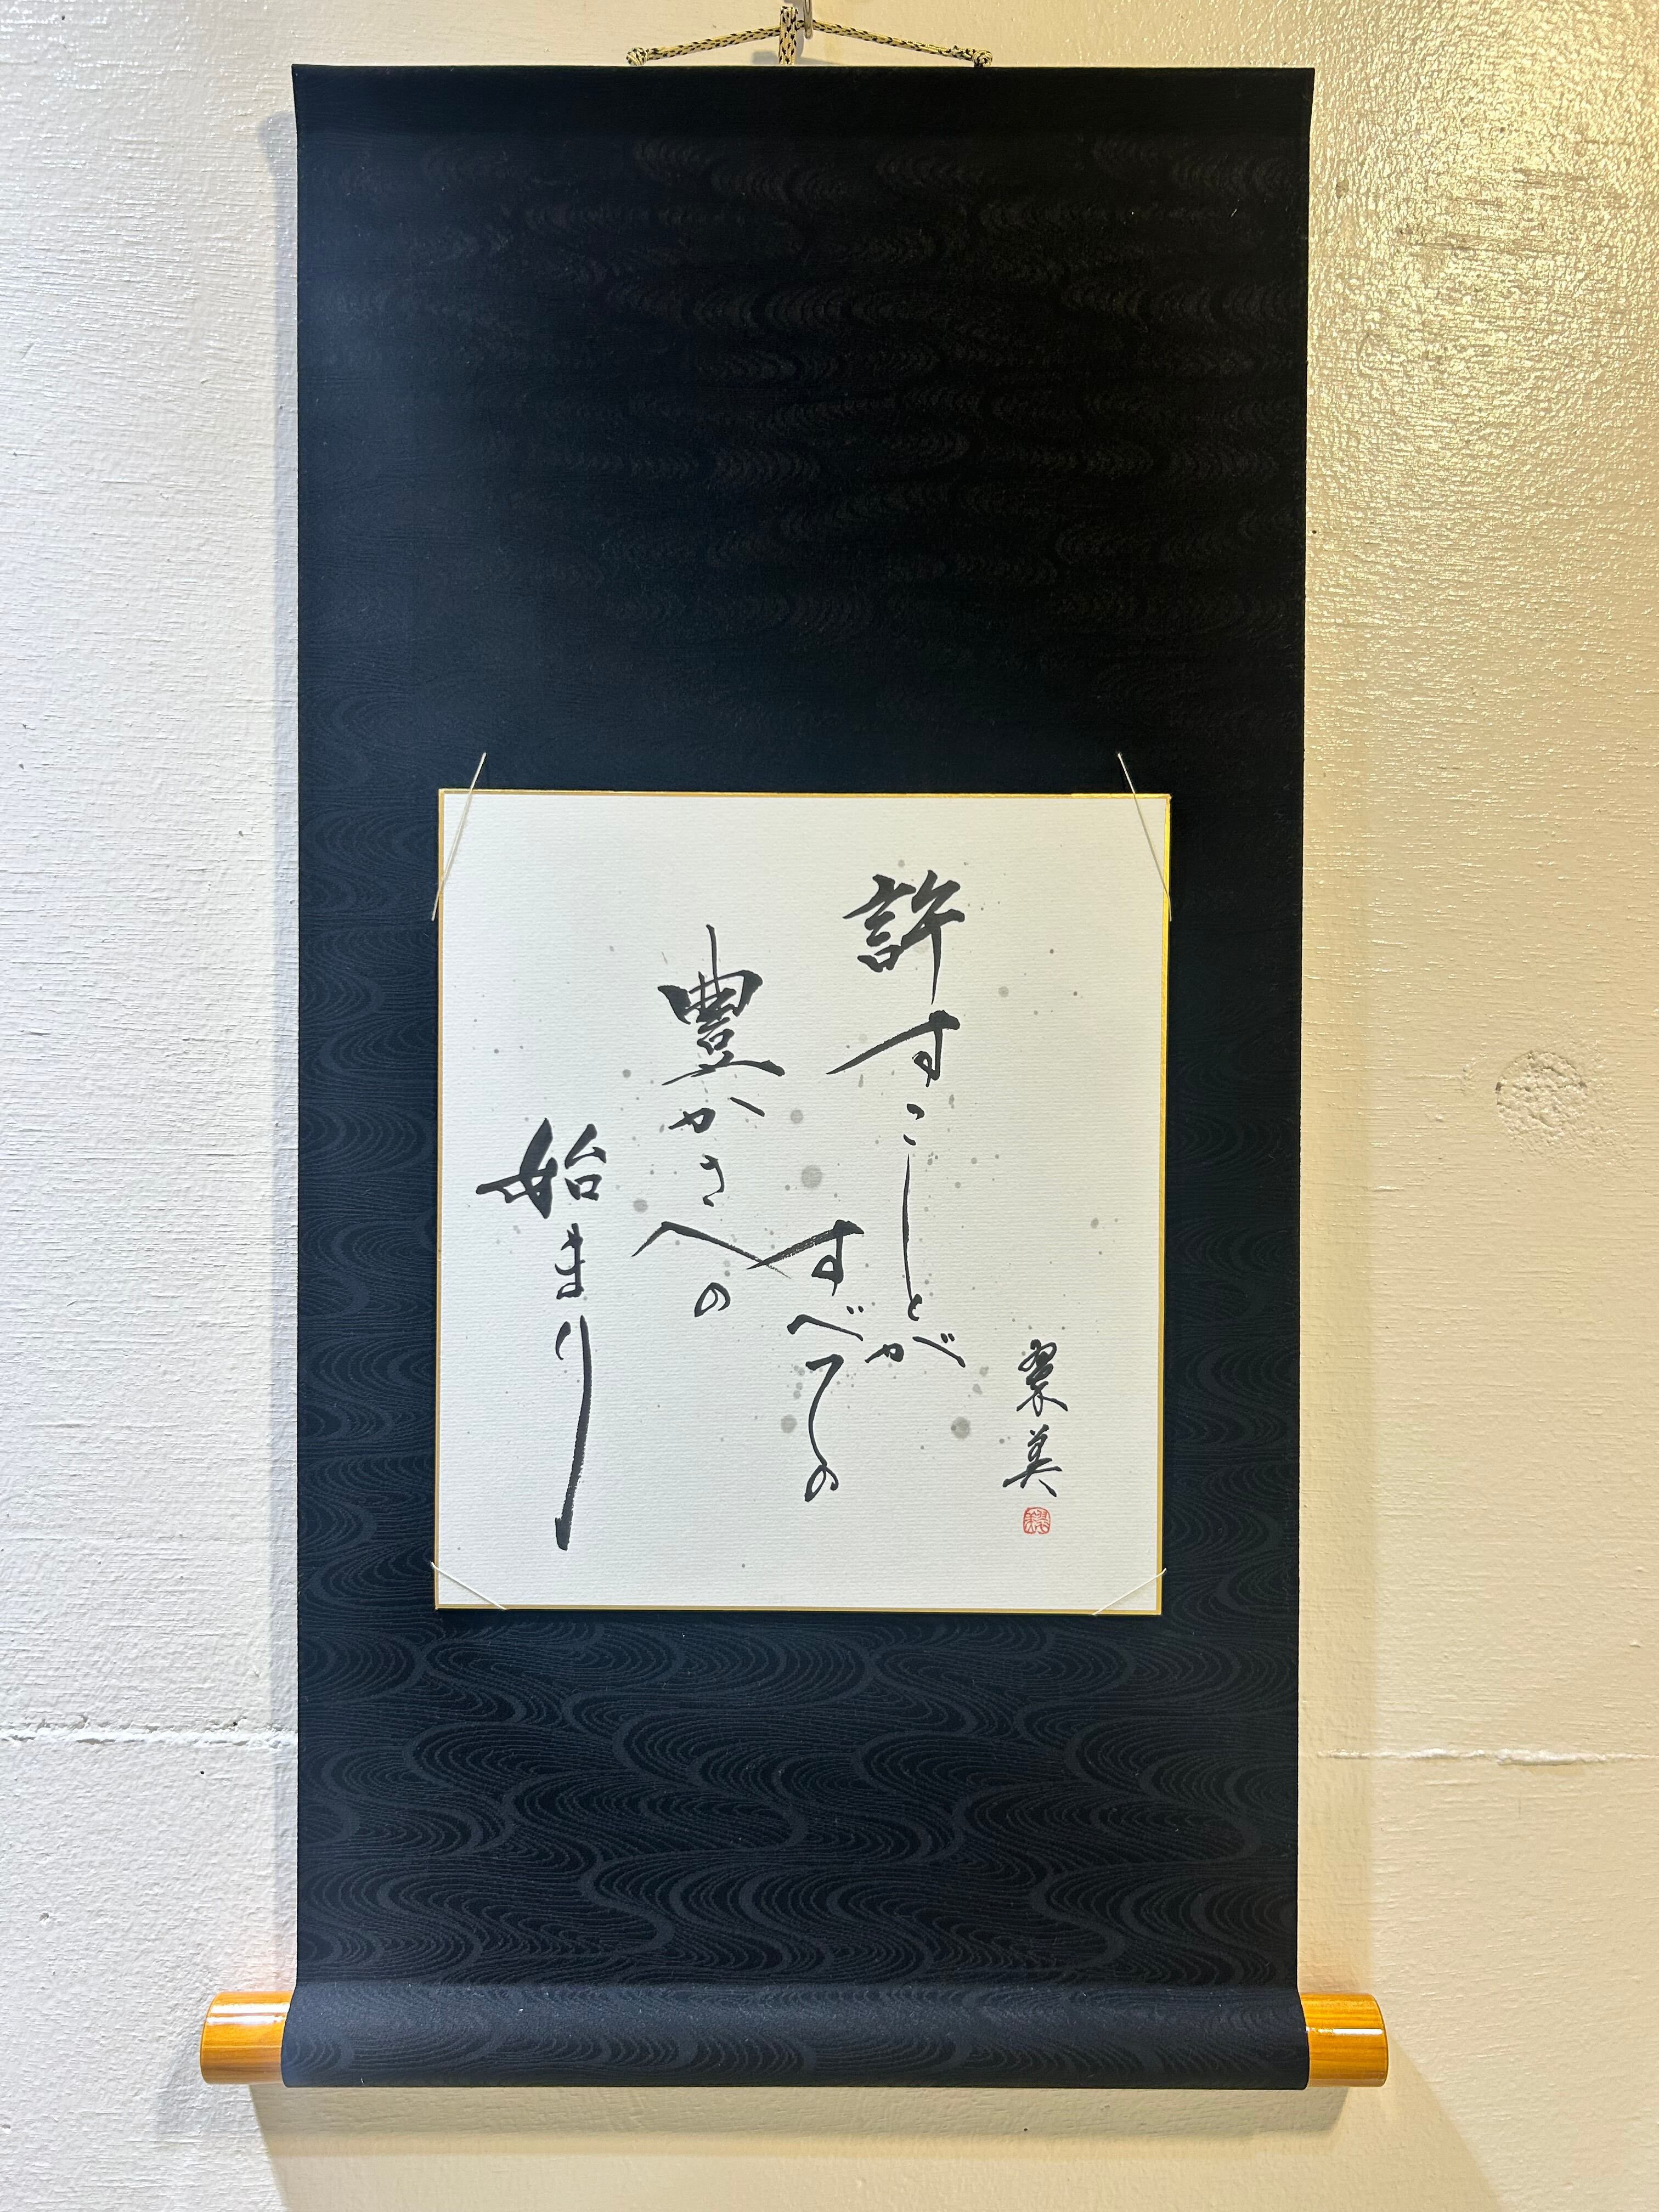 許すことが
すべての
豊かさへの
始まり